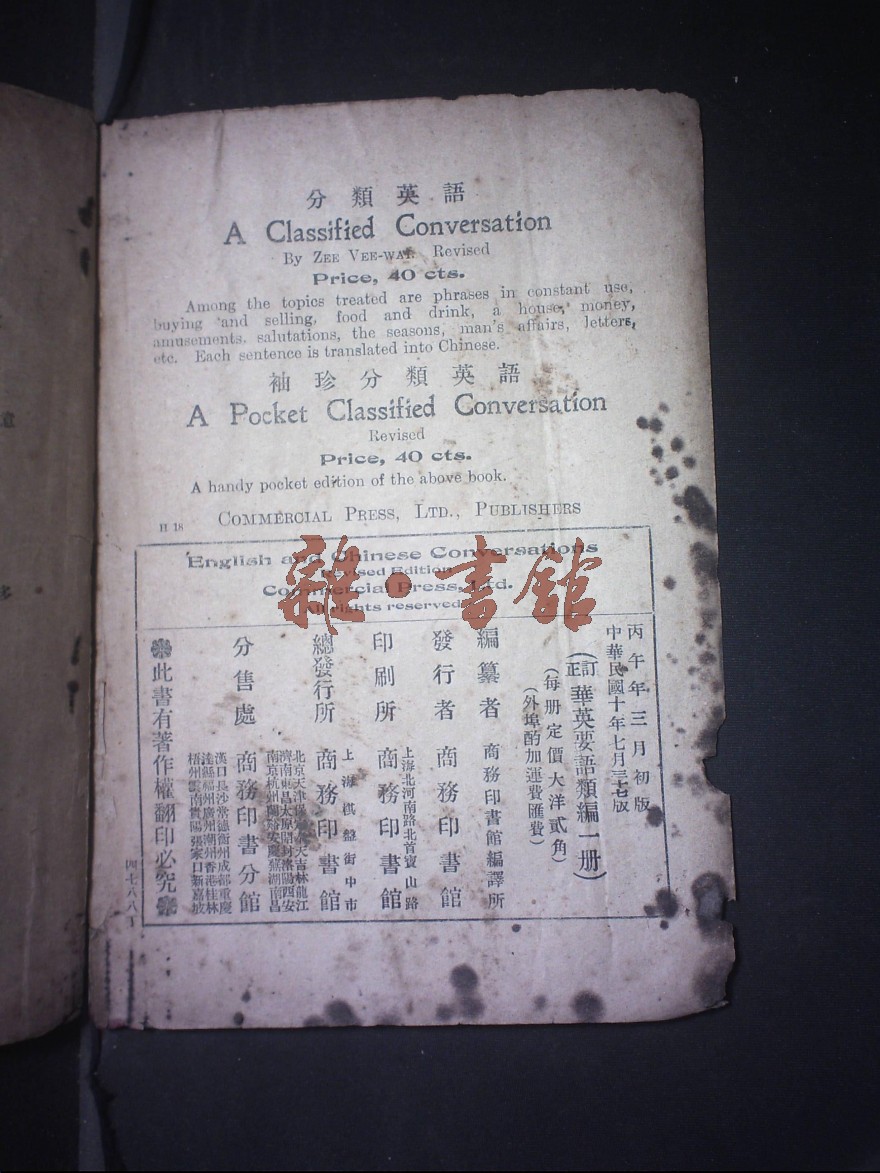 分類英語
A Classified Conversation
By ZEE VEE-WAI. Revised
Price, 40 cts.
Among the topics treated are phrases in constant use,
buying and selling, food and drink, a house, money,
amusements, salutations, the seasons, man's affairs, letters,
etc. Each sentence is translated into Chinese.
袖珍分類英語
A Pocket Classified Conversation
Revised
Price, 40 cts.
A handy pocket edition of the above book.
H 18 COMMERCIAL PRESS, LTD., PUBLISHERS
English and Chinese Conversations
Revised Edition
Commercial Press, Ltd.
All rights reserved
雜·書館
丙午年三月初版
中華民國十年七月三七版
(訂正華英要語類編一册)
(每册定價大洋貳角)
(外埠酌加運費匯費)
編纂者 商務印書館編譯所
發行者 商務印書館
印刷所 上海北河南路北首寶山路 商務印書館
總發行所 上海棋盤街中市 商務印書館
分售處 商務印書分館
北京天津保 奉天吉林龍江
濟南東昌太原開封洛陽西安
南京杭州蘭谿安慶蕪湖南昌
漢口長沙常德衡州成都重慶
達縣福州廣州潮州香港桂林
梧州雲南貴陽張家口新嘉坡
此書有著作權翻印必究
四七八八丁